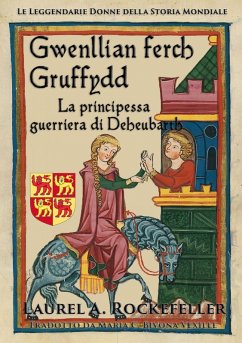 Le Leggendarie Donne della Storia Mondiale
Gwenllian ferch
Gruffydd
La principessa
guerriera di Deheubarth
Laurel A. Rockefeller
Tradotto da Maria C. Bivona Vexille